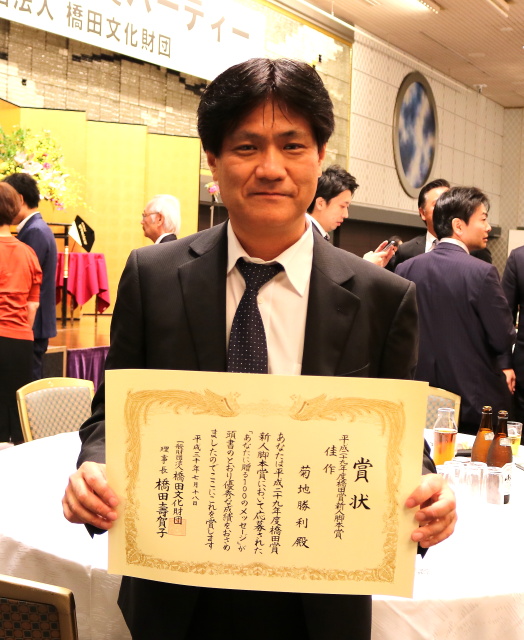 パーティー
団法人 橋田文化財団
賞状
平成二十九年度橋田賞新人脚本賞
佳作
菊地勝利殿
あなたは平成二十九年度橋田賞
新人脚本賞において応募された
「あなたに贈る100のメッセージ」が
頭書のとおり優秀な成績をおさめ
ましたのでここにこれを賞します
平成三十年七月十八日
一般財団法人 橋田文化財団
理事長 橋田壽賀子